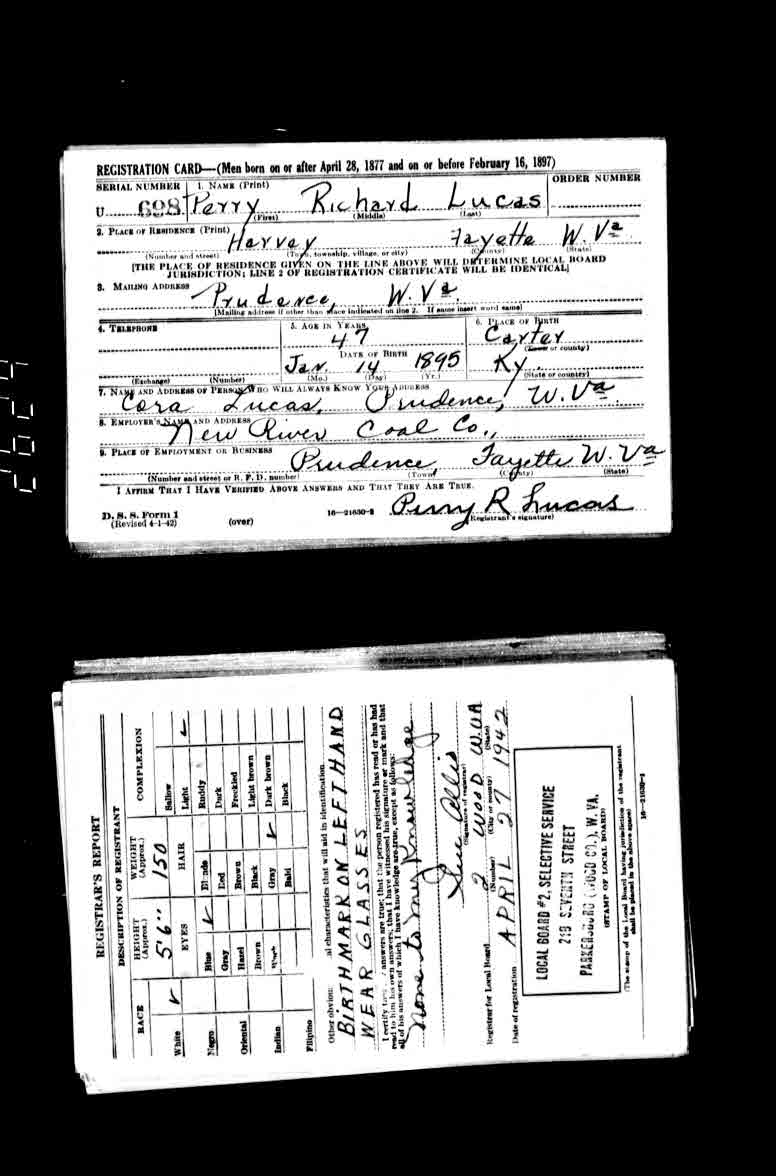 REGISTRATION CARD—(Men born on or after April 28, 1877 and on or before February 16, 1897)
SERIAL NUMBER 1. NAME (Print) ORDER NUMBER
U 698 Perry Richard Lucas
(First) (Middle) (Last)
2. PLACE OF RESIDENCE (Print)
Harvey Fayette W. Va
(Number and street) (Town, township, village, or city) (County) (State)
[THE PLACE OF RESIDENCE GIVEN ON THE LINE ABOVE WILL DETERMINE LOCAL BOARD
JURISDICTION; LINE 2 OF REGISTRATION CERTIFICATE WILL BE IDENTICAL]
3. MAILING ADDRESS
Prudence, W. Va.
[Mailing address if other than place indicated on line 2. If same insert word same]
4. TELEPHONE 5. AGE IN YEARS 6. PLACE OF BIRTH
47 Carter
(Town or county)
DATE OF BIRTH
Jan. 14 1895 Ky.
(Exchange) (Number) (Mo.) (Day) (Yr.) (State or country)
7. NAME AND ADDRESS OF PERSON WHO WILL ALWAYS KNOW YOUR ADDRESS
Cora Lucas, Prudence, W. Va
8. EMPLOYER'S NAME AND ADDRESS
New River Coal Co.,
9. PLACE OF EMPLOYMENT OR BUSINESS
Prudence, Fayette W. Va
(Number and street or R. F. D. number) (Town) (County) (State)
I AFFIRM THAT I HAVE VERIFIED ABOVE ANSWERS AND THAT THEY ARE TRUE.
D. S. S. Form 1
(Revised 4-1-42) (over) 16—21630-2 Perry R Lucas
(Registrant's signature)
REGISTRAR'S REPORT
DESCRIPTION OF REGISTRANT
RACE HEIGHT (Approx.) WEIGHT (Approx.) COMPLEXION
5'6" 150
EYES HAIR
White ✓ Blue ✓ Blonde Sallow
Light ✓
Negro Gray Red Ruddy
Hazel Brown Dark
Oriental Brown Black Freckled
Light brown
Indian Black Gray ✓ Dark brown
Bald Black
Filipino
Other obvious al characteristics that will aid in identification
BIRTHMARK ON LEFT HAND
WEAR GLASSES
I certify answers are true; that the person registered has read or has had
read to him his own answers; that I have witnessed his signature or mark and that
all of his answers of which I have knowledge are true, except as follows:
None to my Knowledge
Sue Allis
(Signature of registrar)
Registrar for Local Board 2 WOOD W.VA
(Number) (City or county) (State)
Date of registration APRIL 27 1942
LOCAL BOARD #2, SELECTIVE SERVICE
SEVENTH STREET
PARKERSBURG (WOOD CO.), W. VA.
(STAMP OF LOCAL BOARD)
(The stamp of the Local Board having jurisdiction of the registrant
shall be placed in the above space)
16—21630-1